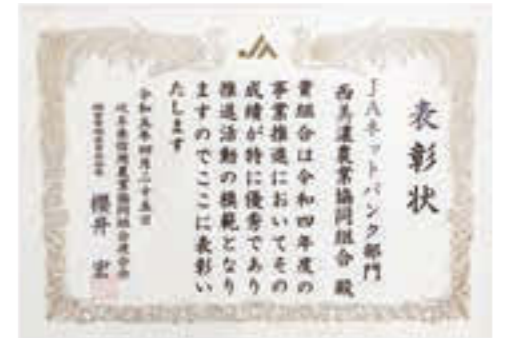 表彰状
JAネットバンク部門
西美濃農業協同組合 殿
貴組合は令和四年度の
事業推進においてその
成績が特に優秀であり
推進活動の模範となり
ますのでここに表彰い
たします
令和五年四月二十五日
岐阜県信用農業協同組合連合会
櫻井 宏
JA